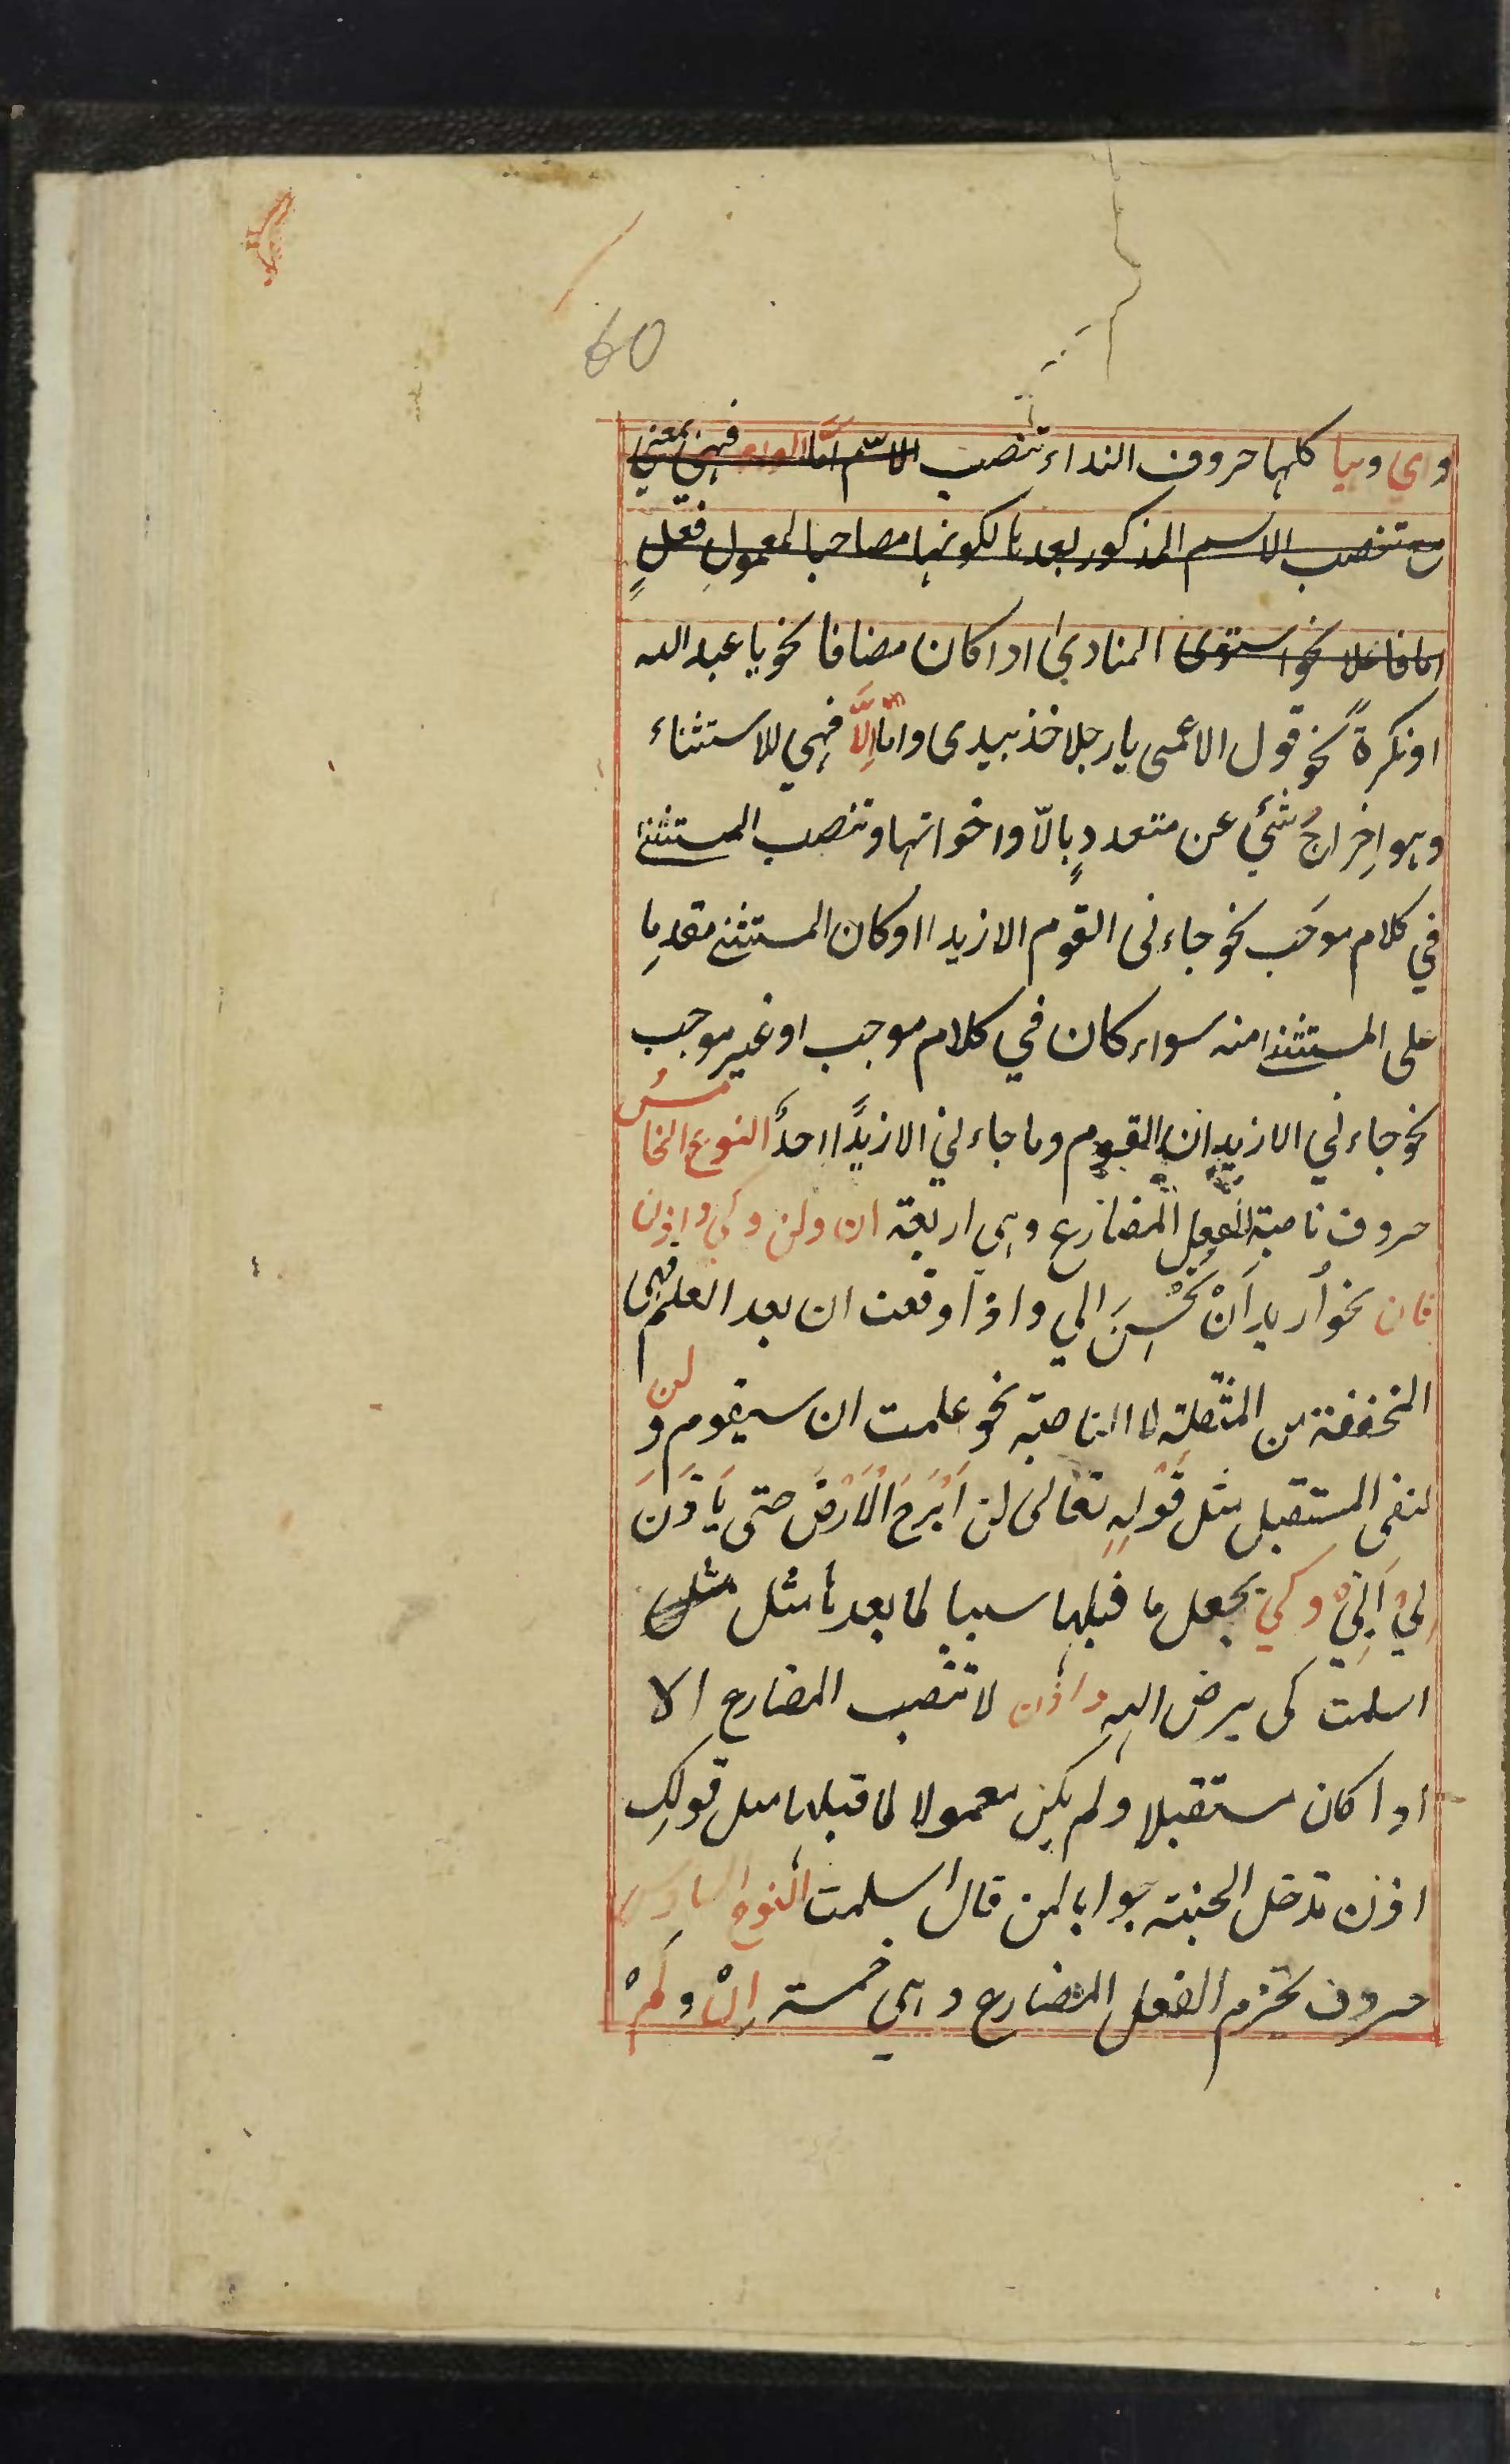 60
واي وهيا كلها حروف النداء تنصب الاسم امّا الواو فهي بمعني
مع تنصب الاسم المذكور بعدها لكونها مصاحبا لمعمولِ فعلٍ
اما فاعلا نحو استوى المنادىٰ اذا كان مضافا نحو يا عبد الله
او نكرةً نحو قول الاعمى يا رجلا خذ بيدى وامّا اِلَّا فهي للاستثناء
وهو اِخراجُ شئي عن متعددٍ بالّا واخواتها وتنصب المستثنىٰ
في كلام موجَب نحو جاءنى القوم الا زيدا او كان المستثنے مقدما
على المستثنىٰ منه سواء كان في كلام موجب او غير موجب
نحو جاءني الا زيدان القوم وما جاءني الا زيدًا احدٌ النوع الخامسُ
حروف ناصبة الفعل المضارع وهي اربعة ان ولن وكي واذن
فان نحو اُريد اَنْ تُحْسِنَ الي واذا وقعت ان بعد العلم فهى
المخففة من المثقلة لا الناصبة نحو علمت ان سيقوم ولن
لنفى المستقبل مثل قَوْلِهٖ تعالىٰ لن اَبْرَحَ الْاَرْضَ حتى يَاْذَنَ
لِيْ اَبِيْ وكي يجعل ما قبلها سببا لما بعدها مثل مثل
اسلمت كى يرض الله واذن لا تنصب المضارع الا
اذا كان مستقبلا ولم يكن معمولا لما قبلها مثل قولك
اذن تدخل الجنة جوابا لمن قال اسلمت النوع السادس
حروف تجزم الفعل المضارع وهي خمسة اِنْ ولَمْ